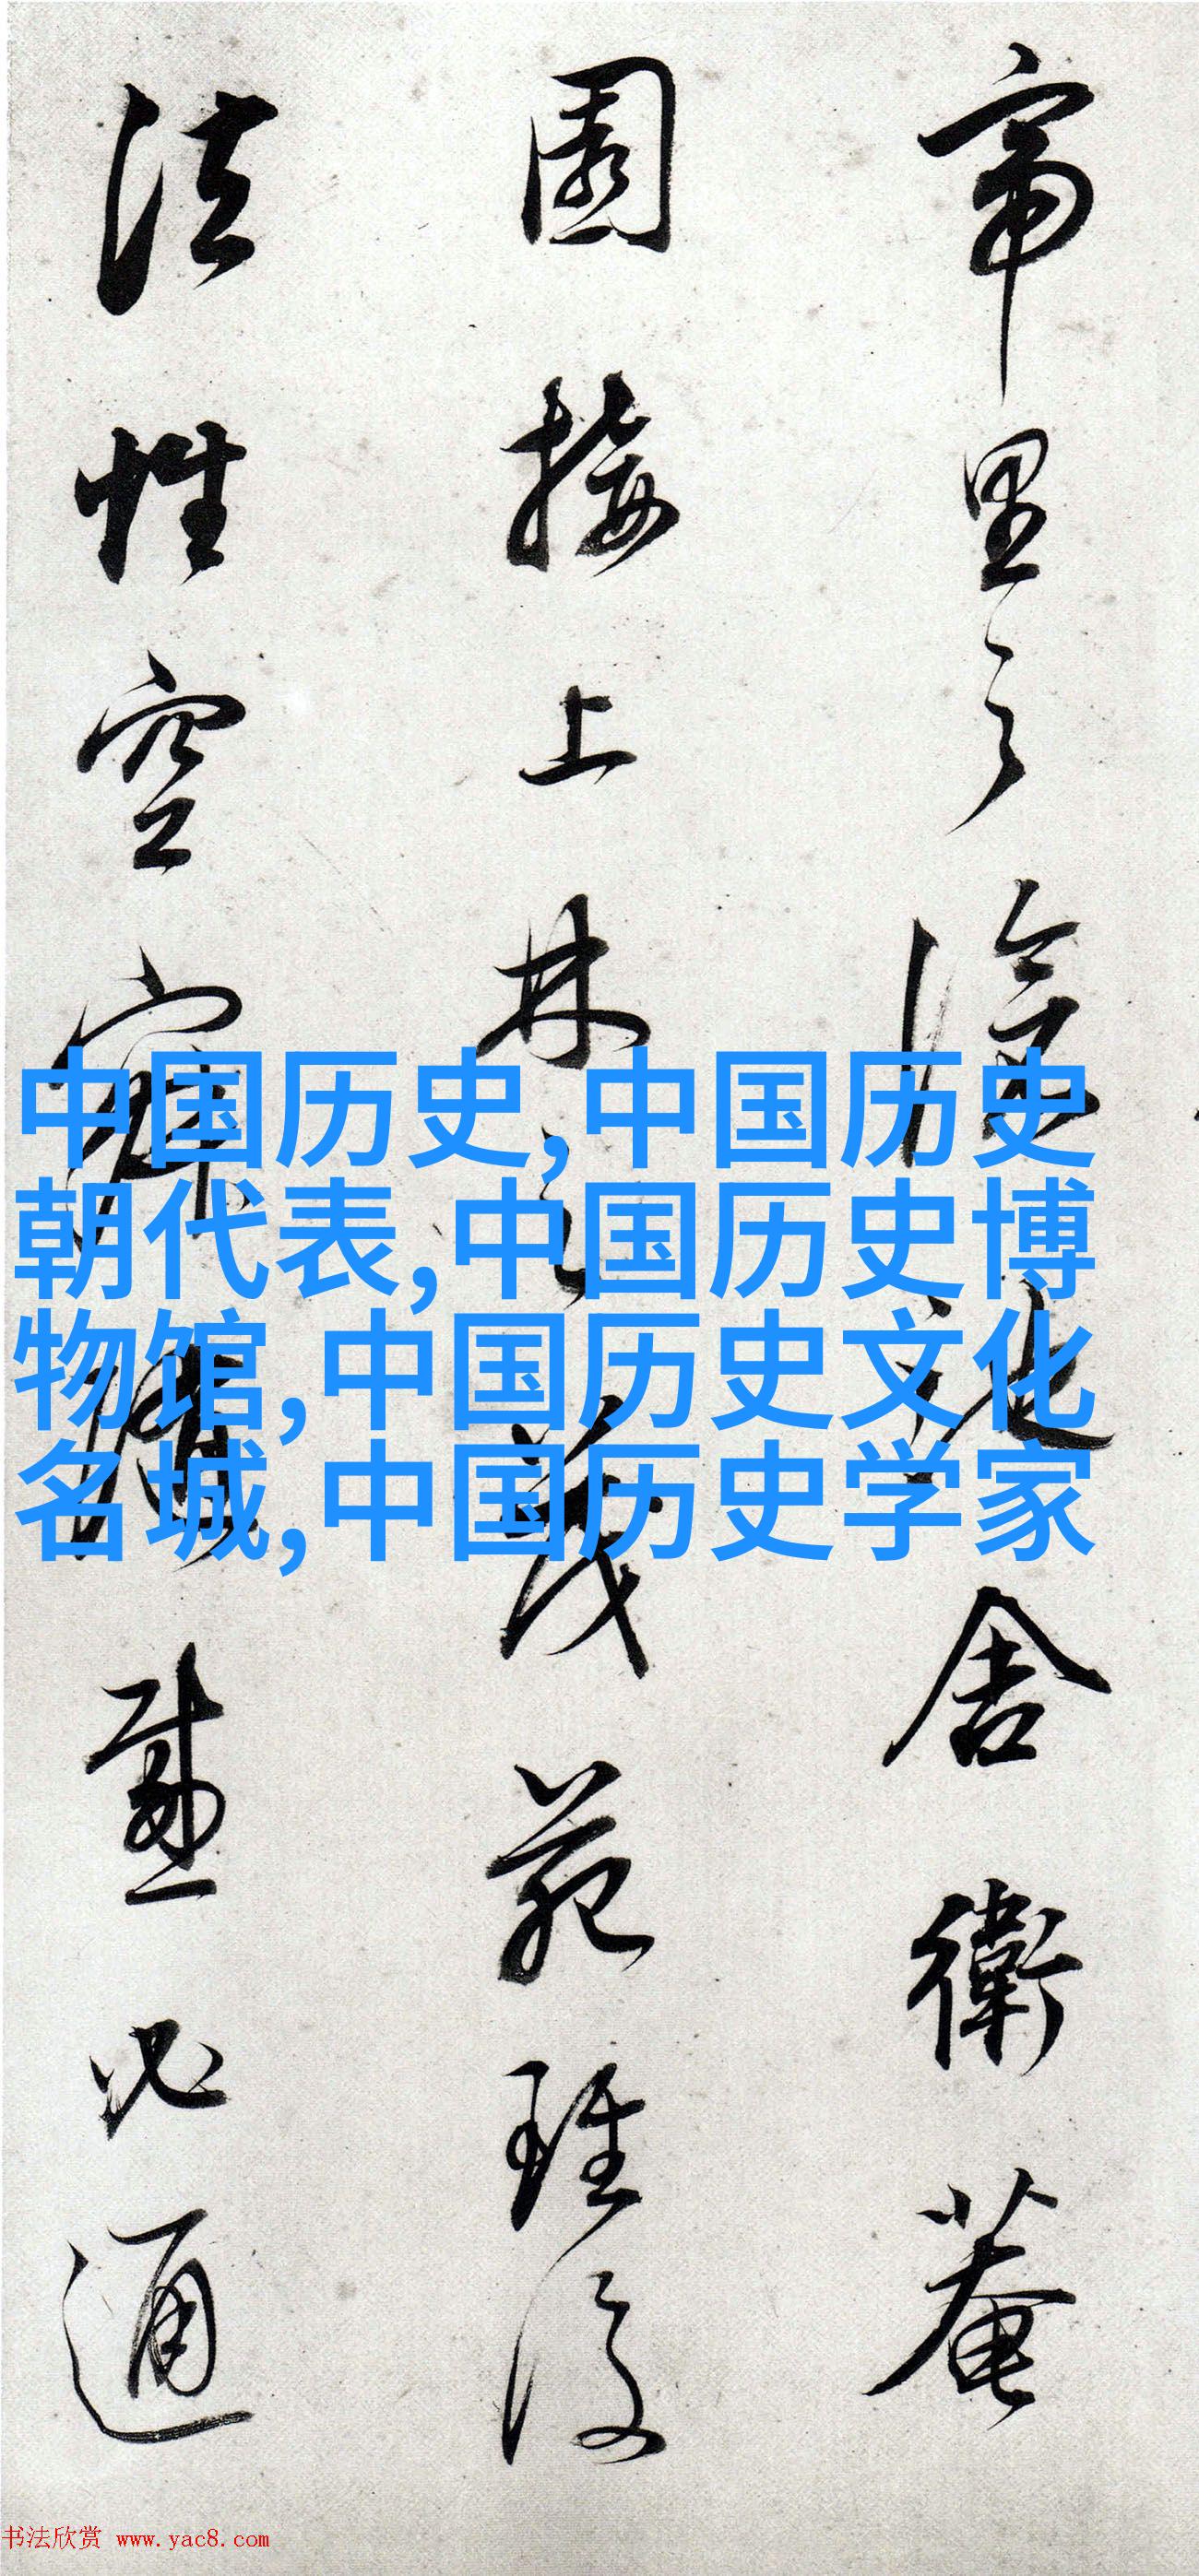 帝里之池舍衛菴
園接上林之茂苑雖復
法性空寂隨感必通
中国历史,中国历史
朝代表,中国历史博
物馆,中国历史文化
名城,中国历史学家
书法欣赏 www.yac8.com